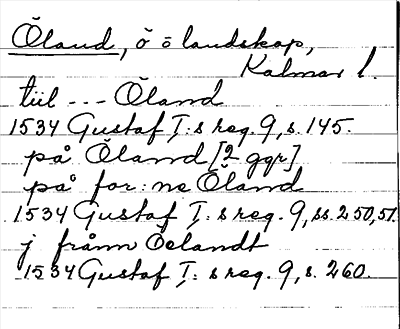 Öland, ö ö landskap,
Kalmar l.
tiil --- Öland
1534 Gustaf I:s reg. 9, s. 145.
på Öland [2 ggr]
på for:ne Öland
1534 Gustaf I:s reg. 9, ss. 250, 51.
j frånn Óelandt
1534 Gustaf I:s reg. 9, s. 260.